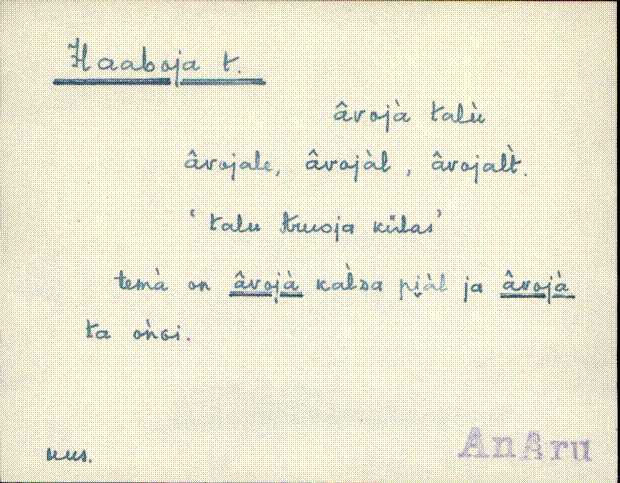 Haaboja t.
âvojà talù
âvojale, âvojàl, âvojalt̀.
‘talu Kuusoja külas’
temà on âvojà kal̀da pi̮àl ja âvojà
ta oǹɢi.
uus.
AnAru